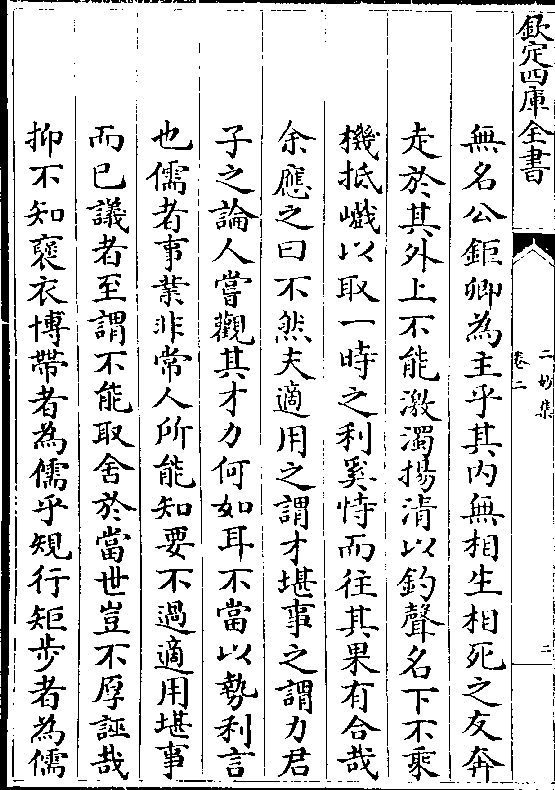 欽定四庫全書
二妙集
卷二
二
無名公鉅卿為主乎其内無相生相死之友奔
走於其外上不能激濁揚清以釣聲名下不乘
機抵巇以取一時之利奚恃而往其果有合哉
余應之曰不然夫適用之謂才堪事之謂力君
子之論人嘗觀其才力何如耳不當以勢利言
也儒者事業非常人所能知要不過適用堪事
而已議者至謂不能取舍於當世豈不厚誣哉
抑不知褒衣博帶者為儒乎規行矩步者為儒